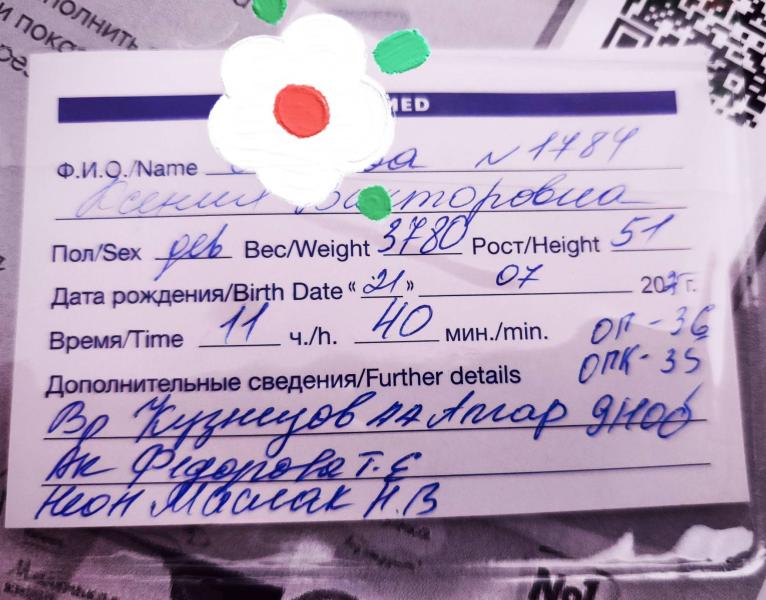 MED
Ф.И.О./Name ва N 1784
Ксения Викторовна
Пол/Sex дев Вес/Weight 3780 Рост/Height 51
Дата рождения/Birth Date “21” 07 202 г.
Время/Time 11 ч./h. 40 мин./min. ОГ - 36
Дополнительные сведения/Further details ОПК - 35
Вр Кузнецов АА Апгар
Ак Федорова Т. Е
Неон Маслак Н. В
полнить
и пока
№1